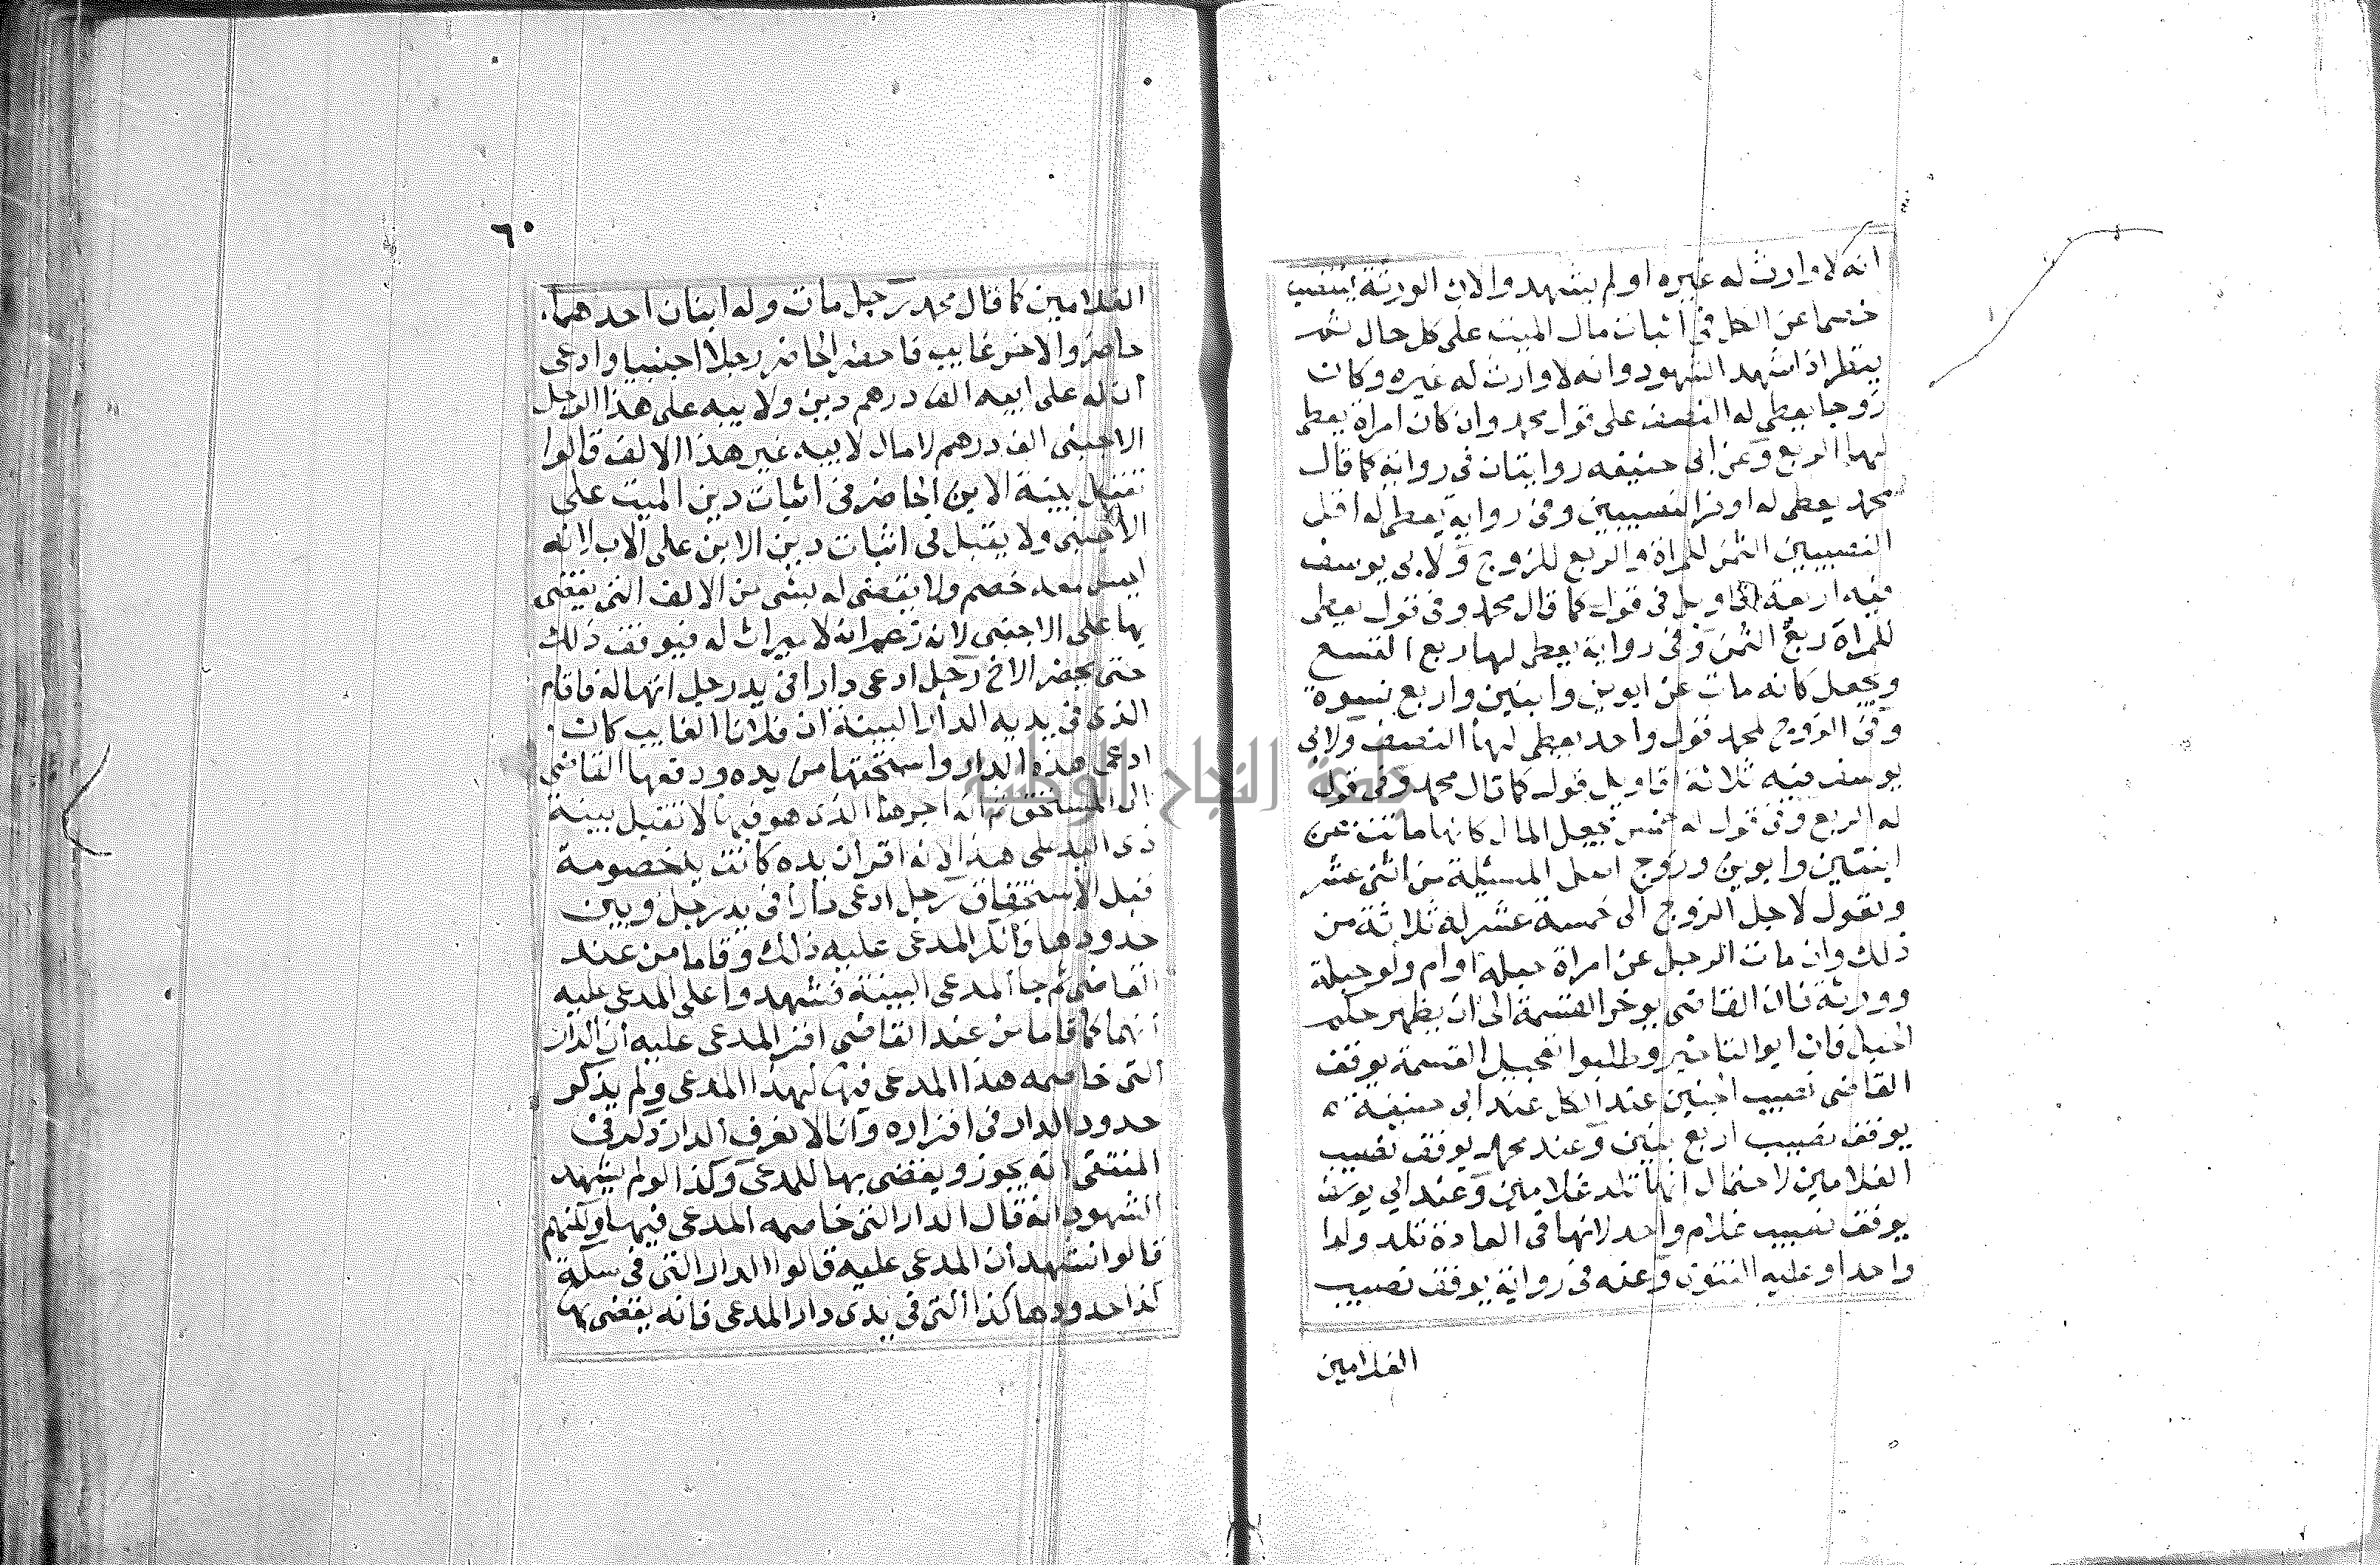 انه لا وارث له غيره او لم يشهدوا لان الورثة ينتصب
خصما عن الكل في اثبات مال الميت على كل حال ثم
ينظر اذا شهد الشهود وانه لا وارث له غيره وكان
زوجا يعطى له النصف على قول محمد وان كان امراة يعطى
لها الربع وعن ابى حنيفه روايتان فى رواية كما قال
محمد يعطى له اوفر النصيبين وفى رواية يعطى له اقل
النصيبين الثمن للمراة والربع للزوج ولابى يوسف
فيه اربعة اقاويل فى قول كما قال محمد وفى قول يعطى
للمراة ربع الثمن وفى رواية يعطى لها ربع التسع
ويجعل كانه مات عن ابوين وابنتين واربع نسوة
وفى الزوج لمحمد قول واحد يعطى لها النصف ولابى
يوسف فيه ثلاثة اقاويل قول كما قال محمد وفى قول
له الربع وفى قول له خمس يجعل المال كانها ماتت عن
ابنتين وابوين وزوج اصل المسئلة من اثنى عشر
ونقول لاجل الزوج الى خمسة عشر له ثلاثة من
ذلك وان مات الرجل عن امراة حبلى وام ولو حبلة
وورثة فان القاضى يوخر القسمة الى ان يظهر حكم
الحبل فان ابوا التاخير وطلبوا تعجيل القسمة يوقف
القاضى نصيب الجنين عند الكل عند ابى حنيفة
يوقف نصيب اربع بنين وعند محمد يوقف نصيب
الغلامين لاحتمال انها تلد غلامين وعند ابى يوسف
يوقف نصيب غلام واحد لانها فى العادة تلد ولدا
واحدا وعليه الفتوى وعنه فى رواية يوقف نصيب
الغلامين
٦٠
الغلامين كما قال محمد رجل مات وله ابنان احدهما
حاضر والاخر غايب فاحضر الحاضر رجلا اجنبيا وادعى
ان له على ابيه الف درهم دين ولابيه على هذا الرجل
الاجنبى الف درهم لا مال لابيه غير هذا الالف قالوا
تقبل بينة الابن الحاضر فى اثبات دين الميت على
الاجنبى ولا يقبل فى اثبات دين الابن على الاب لانه
ليس معه خصم ولا يقضى له بشى من الالف التى يقضى
بها على الاجنبى لانه زعم انه لا ميراث له فيوقف ذلك
حتى يحضر الاخ رجل ادعى دارا فى يد رجل انها له فاقام
الذى فى يديه الدار البينة ان فلانا الغايب كان
ادعى هذه الدار واستحقها من يده ودفعها القاضى
الى المستحق ثم انه اجرها الذى هو فيها لا تقبل بينة
ذى اليد على هذا لانه اقر ان يده كانت يد خصومة
قبل الاستحقاق رجل ادعى دارا فى يد رجل وبين
حدودها فانكر المدعى عليه ذلك وقاما من عند
القاضى ثم جا المدعى البينة فشهدوا على المدعى عليه
انهما كما قاما من عند القاضى اقر المدعى عليه ان الدار
التى خاصمه هذا المدعى فيها لهذا المدعى ولم يذكر
حدود الدار فى اقراره وانا لا نعرف الدار ذكر فى
المنتقى انه يجوز ويقضى بها للمدعى وكذا لو لم يشهد
الشهود انه قال الدار التى خاصمه المدعى فيها ولكنهم
قالوا نشهد ان المدعى عليه قالوا الدار التى فى سكة
كذا حدودها كذا التى فى يدى دار المدعى فانه يقضى بها